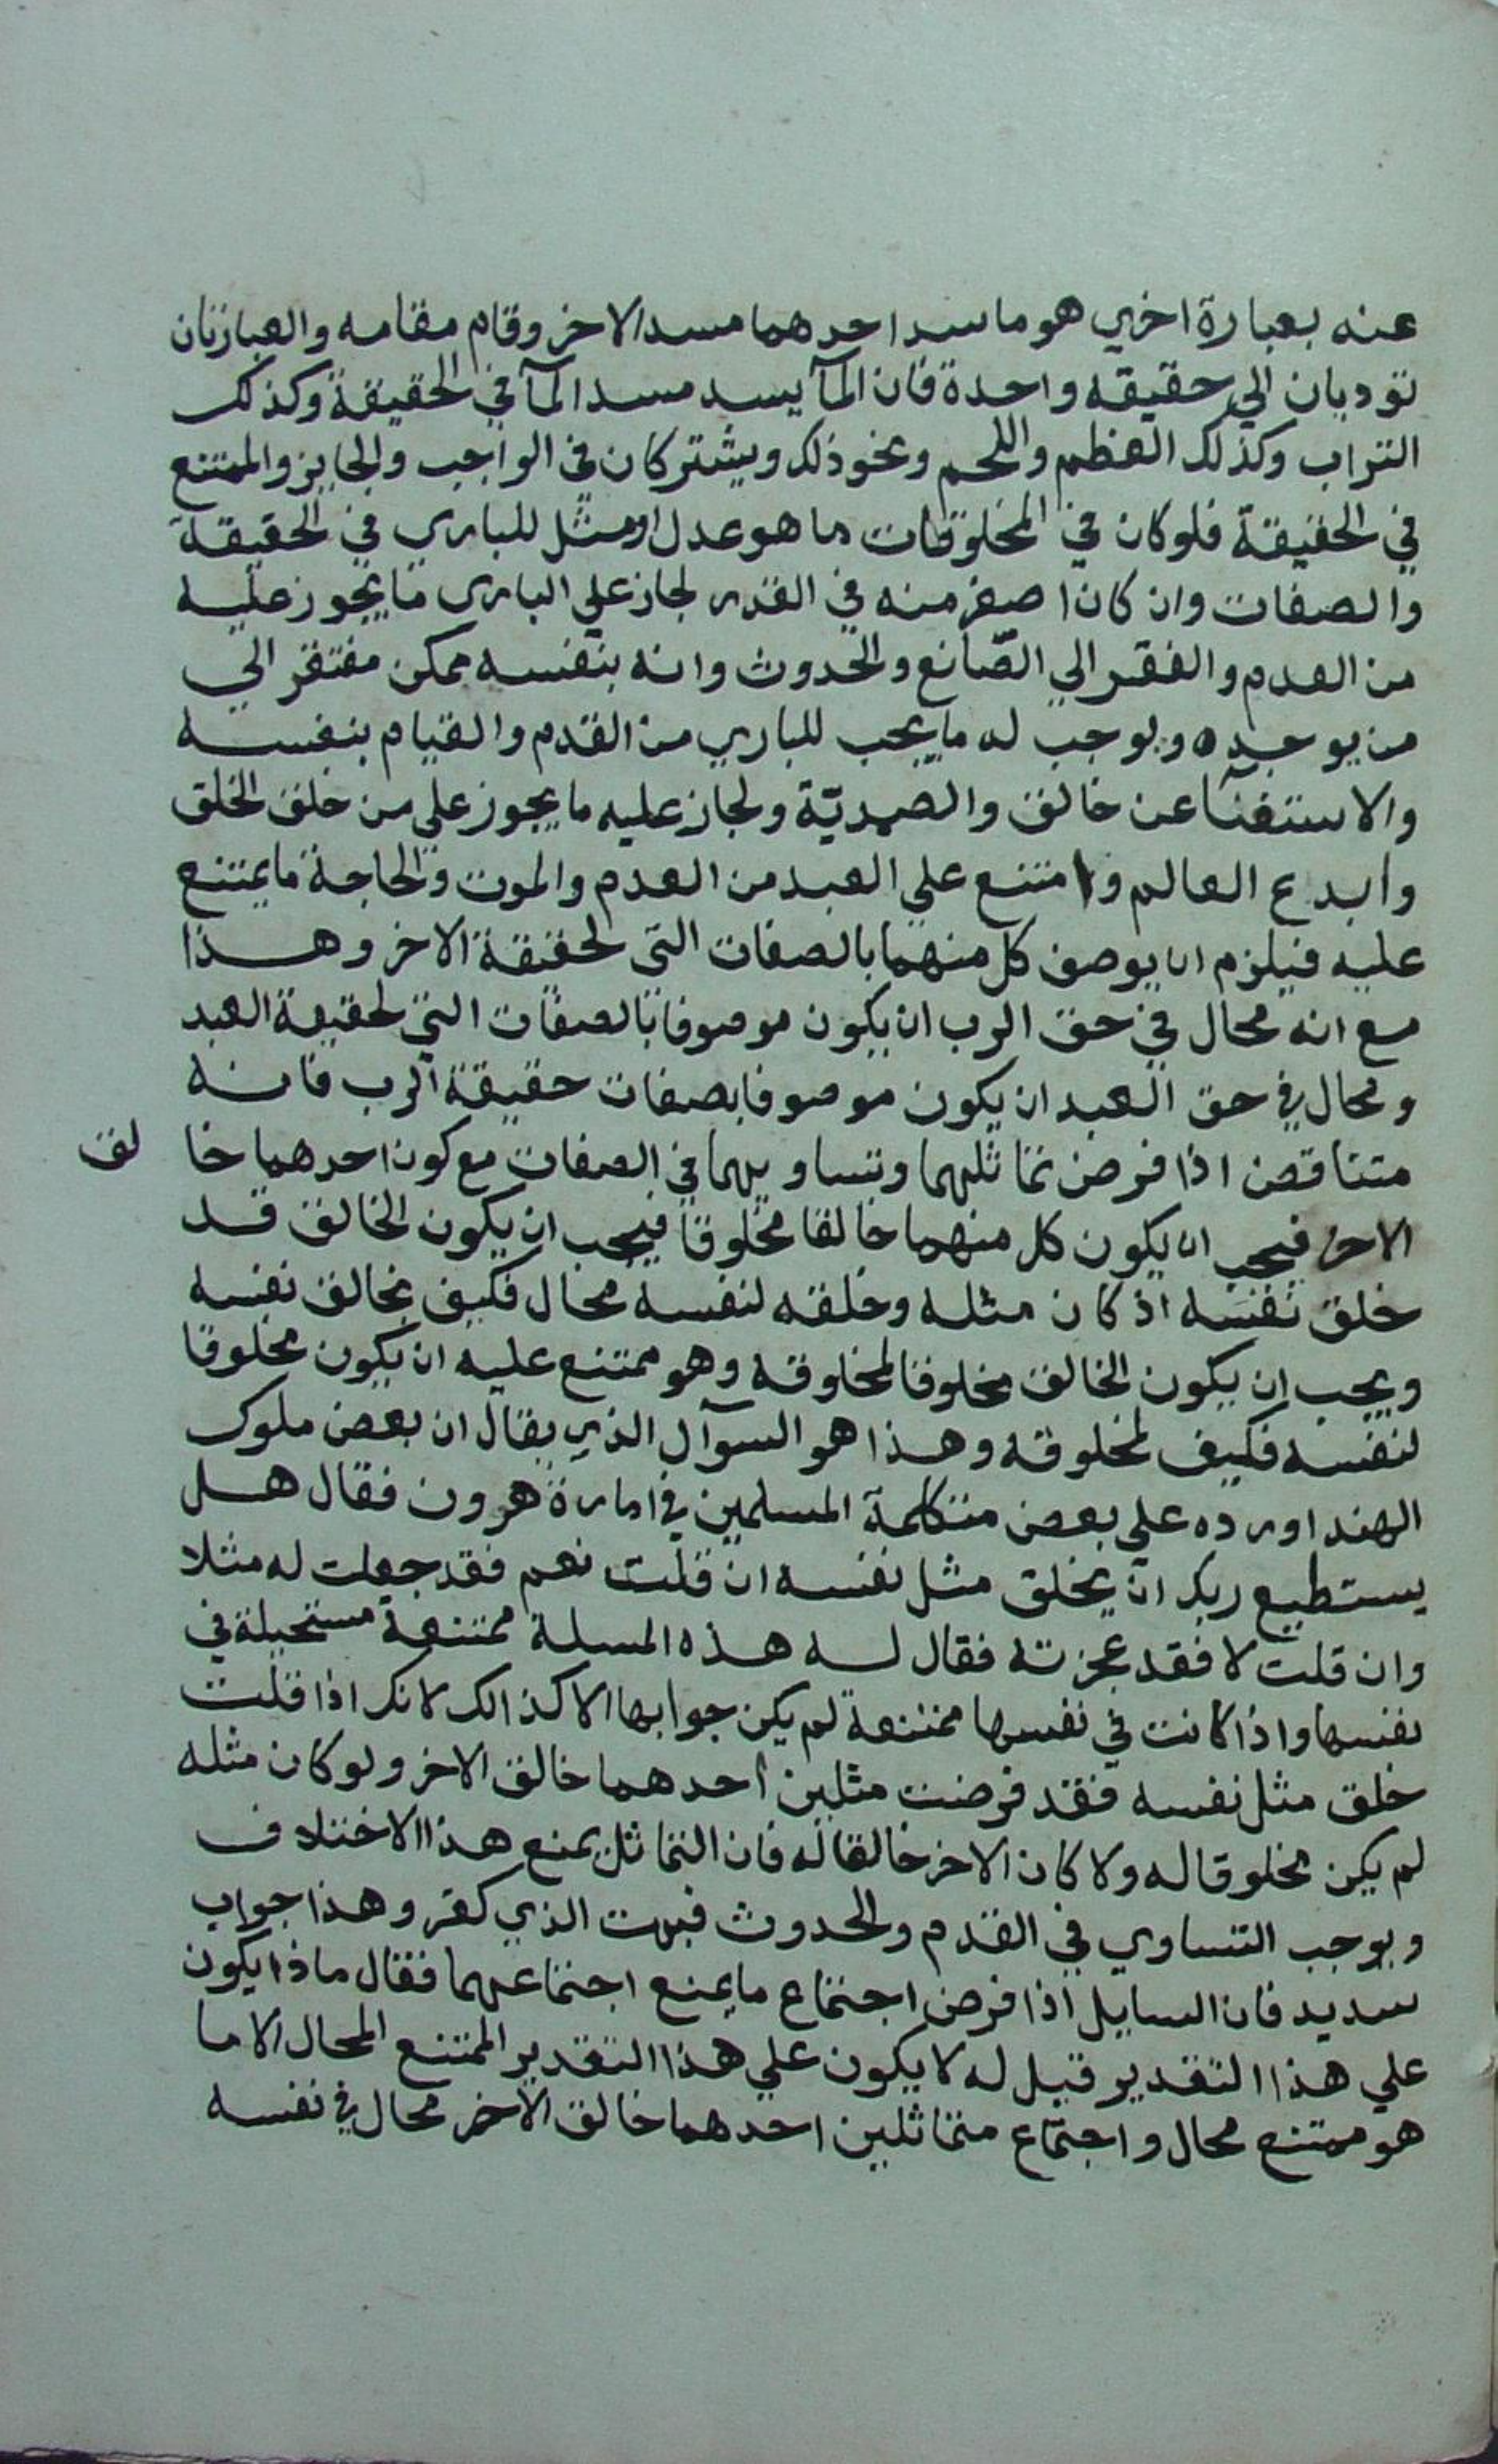 عنه بعبارة اخري هو ما سد احدهما مسد الاخر وقام مقامه والعبارتان
توديان الي حقيقه واحدة فان المآ يسد مسد المآ في الحقيقة وكذلك
التراب وكذلك العظم واللحم ونحو ذلك ويشتركان في الواجب والجايز والممتنع
في الحقيقة فلو كان في المخلوقات ما هو عدل او مثل للباري في الحقيقة
والصفات وان كان اصغر منه في القدر لجاز علي الباري ما يجوز عليه
من العدم والفقر الي الصّانع والحدوث وانه بنفسه ممكن مفتقر الي
من يوجده و بوجب له ما يجب للباري من القدم والقيام بنفسه
والاستغنآ عن خالق والصمديّة ولجاز عليه ما يجوز علي من خلق الخلق
وابدع العالم وامتنع علي العبد من العدم والموت والحاجة ما يمتنع
عليه فيلزم ان يوصف كل منهما بالصفات التي لحقيقة الاخر وهذا
مع انه محال في حق الرب ان يكون موصوفا بالصفات التي لحقيقة العبد
ومحال في حق العبد ان يكون موصوفا بصفات حقيقة الرب فانه
متناقض اذا فرض تماثلهما وتساويهما في الصفات مع كون احدهما خا لق
الاخر فيجب ان يكون كل منهما خالقا مخلوقا فيجب ان يكون الخالق قد
خلق نفسه اذ كان مثله وخلقه لنفسه محال فكيف بخالق نفسه
ويجب ان يكون الخالق مخلوقا لمخلوقه وهو ممتنع عليه ان يكون مخلوقا
لنفسه فكيف لمخلوقه وهذا هو السوآل الذي يقال ان بعض ملوك
الهند اورده علي بعض متكلمة المسلمين في امارة هرون فقال هل
يستطيع ربك ان يخلق مثل نفسه ان قلت نعم فقد جعلت له مثلا
وان قلت لا فقد عجزته فقال له هذه المسلة ممتنعة مستحيلة في
نفسها واذا كانت في نفسها ممتنعة لم يكن جوابها الا كذالك لانك اذا قلت
خلق مثل نفسه فقد فرضت مثلين احدهما خالق الاخر ولو كان مثله
لم يكن مخلوقا له ولا كان الاخر خالقا له فان التماثل يمنع هذا الاختلاف
وبوجب التساوي في القدم والحدوث فبهت الذي كفر وهذا جواب
سديد فان السايل اذا فرض اجتماع ما يمنع اجتماعهما فقال ماذا يكون
علي هذا التقدير قيل له لا يكون علي هذا التقدير الممتنع المحال الا ما
هو ممتنع محال واجتماع متماثلين احدهما خالق الاخر محال في نفسه